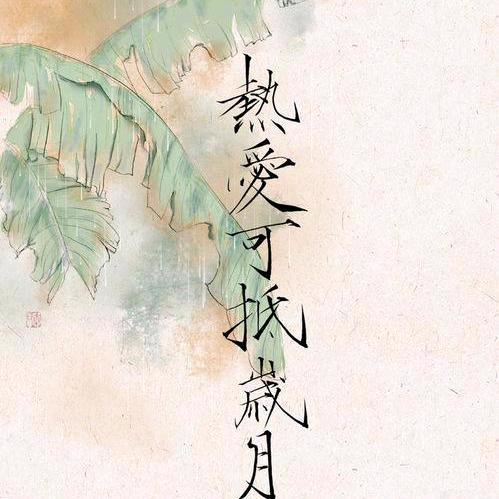 熱愛可抵歲月